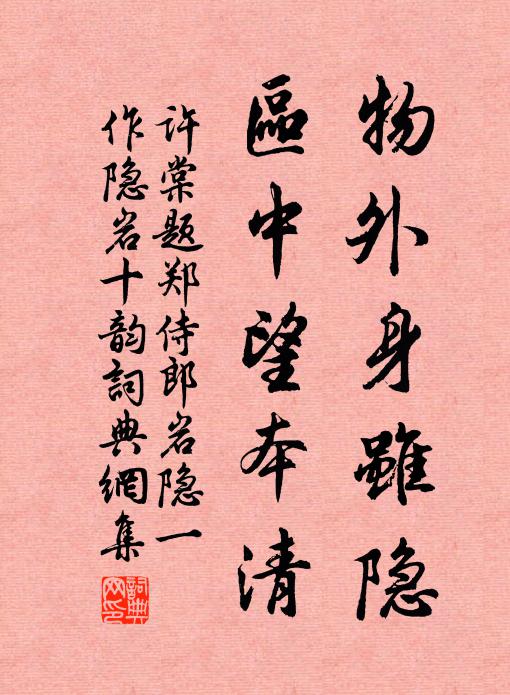 物外身雖隐
區中望本清
许棠题郑侍郎岩隐一
作隐岩十韵詞典網集
詞典网印